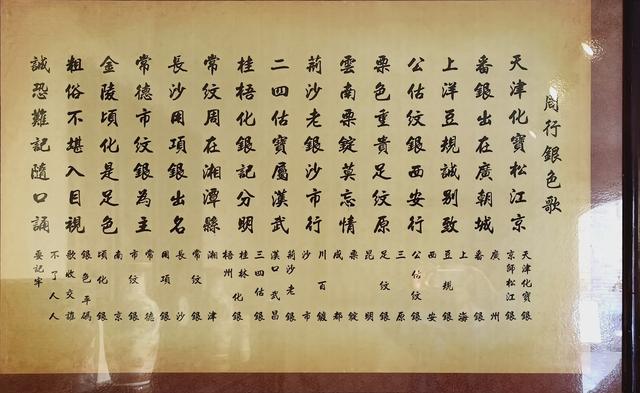 周行銀色歌
天津化寶松江京
番銀出在廣朝城
上洋豆規誠別致
公估紋銀西安行
票色重貴足紋原
雲南票錠莫忘情
荊沙老銀沙市行
二四估寶屬漢武
桂梧化銀記分明
常紋周在湘潭縣
長沙用項銀出名
常德市紋銀為主
金陵頃化是足色
粗俗不堪入目視
誠恐難記隨口誦
天津化寶銀
京師松江銀
廣州
番銀
上海
豆規銀
西安
公估紋銀
三原
足紋銀
昆明
票錠
成都
川百錠
沙市
荊沙老銀
漢口武昌
二四估銀
桂林化銀
梧州
湘津
常紋銀
長沙
用項銀
常德
市紋銀
南京
頃化銀
銀色平碼
歌收交誰
不了人人
要記牢